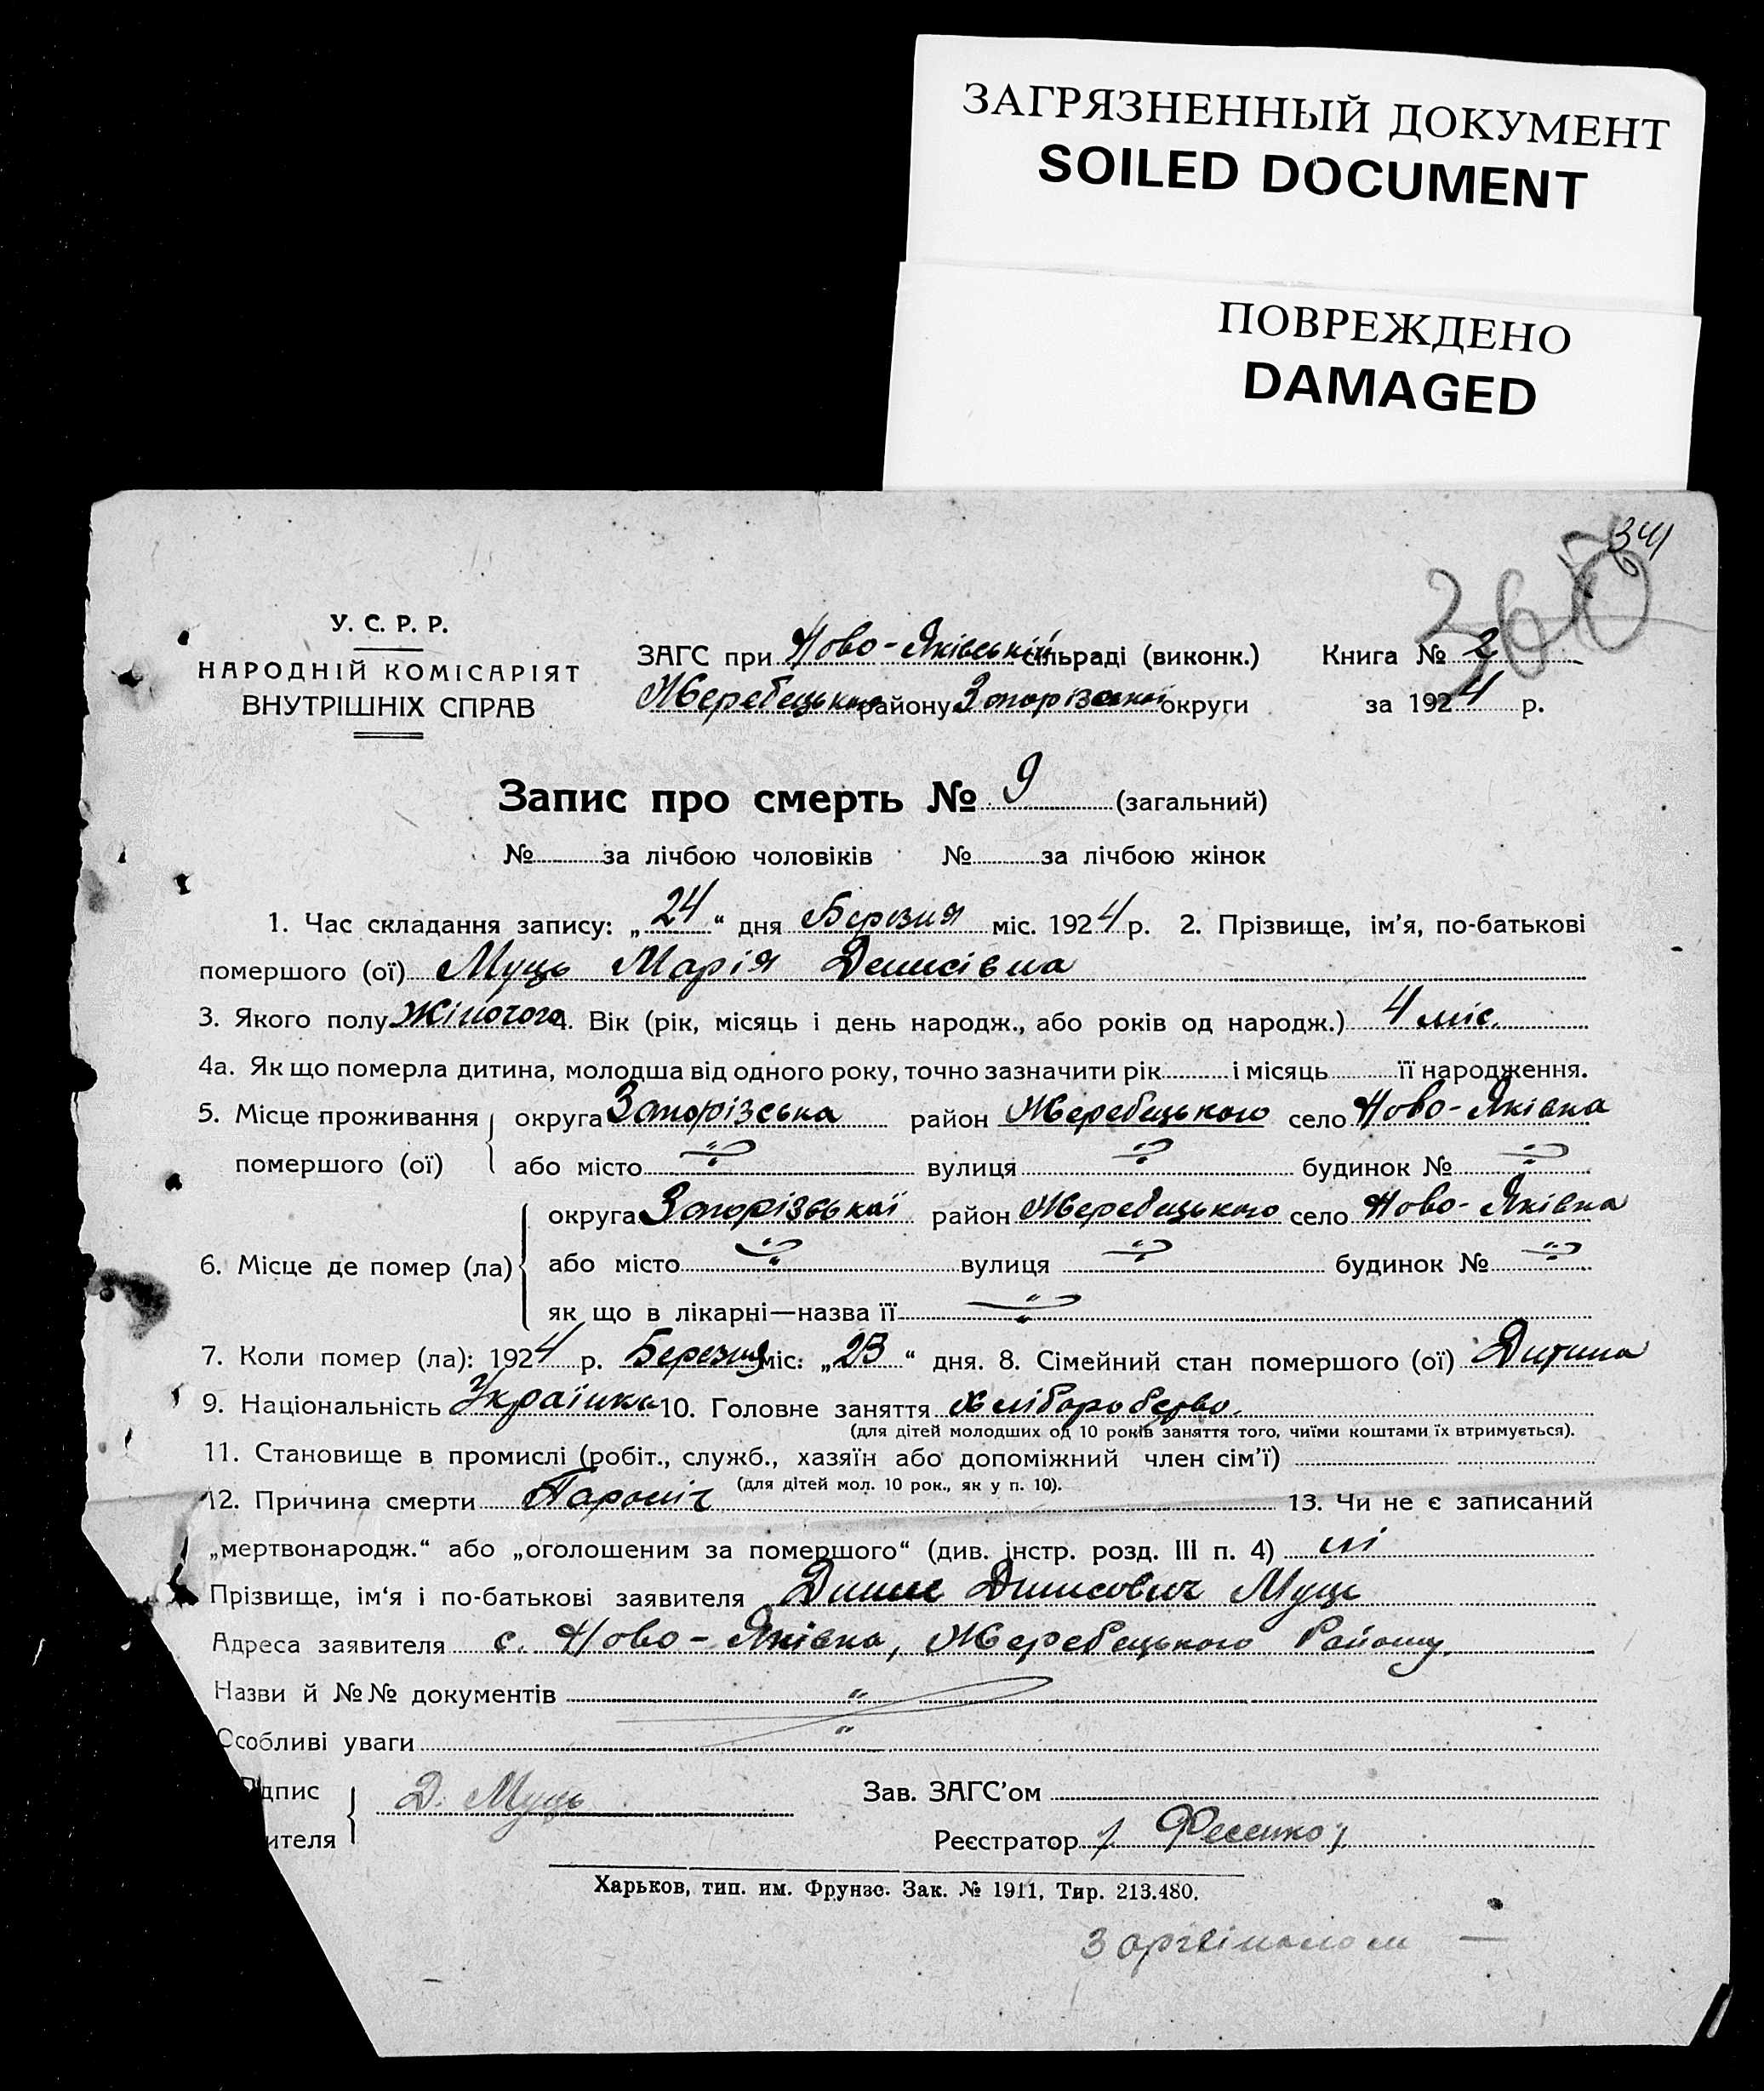 ЗАГРЯЗНЕННЫЙ ДОКУМЕНТ
SOILED DOCUMENT
ПОВРЕЖДЕНО
DAMAGED
341
360
У. С. Р. Р.
НАРОДНІЙ КОМІСАРІЯТ
ВНУТРІШНІХ СПРАВ
ЗАГС при Ново-Яківській сільраді (виконк.) Книга № 2
Жеребецького району Запорізської округи за 1924 р.
Запис про смерть № 9 (загальний)
№ за лічбою чоловіків № за лічбою жінок
1. Час складання запису: „24“ дня Березня міс. 1924 р. 2. Прізвище, ім’я, по-батькові
помершого (ої) Муць Марія Денисівна
3. Якого полу Жіночого 4. Вік (рік, місяць і день народж., або років од народж.) 4 міс.
4а. Як що померла дитина, молодша від одного року, точно зазначити рік і місяць її народження.
5. Місце проживання округа Запорізська район Жеребецького село Ново-Яківка
помершого (ої) або місто вулиця будинок №
округа Запорізської район Жеребецького село Ново-Яківка
6. Місце де помер (ла) або місто вулиця будинок №
як що в лікарні—назва її
7. Коли помер (ла): 1924 р. Березня міс: „23“ дня. 8. Сімейний стан помершого (ої) Дитина
9. Національність Українка 10. Головне заняття Хліборобство.
(для дітей молодших од 10 років заняття того, чиїми коштами їх втримується).
11. Становище в промислі (робіт., служб., хазяїн або допоміжний член сім’ї)
(для дітей мол. 10 рок., як у п. 10).
12. Причина смерти 13. Чи не є записаний
„мертвонародж.“ або „оголошеним за помершого“ (див. інстр. розд. III п. 4) ні
Прізвище, ім‘я і по-батькові заявителя Денис Денисович Муць
Адреса заявителя с. Ново-Яківка, Жеребецького Району.
Назви й №№ документів "
Особливі уваги "
Підпис Д. Муць Зав. ЗАГС’ом
ителя Реєстратор / Фесенко /
Харьков, тип. им. Фрунзе. Зак. № 1911, Тир. 213.480.
З оргіналом —